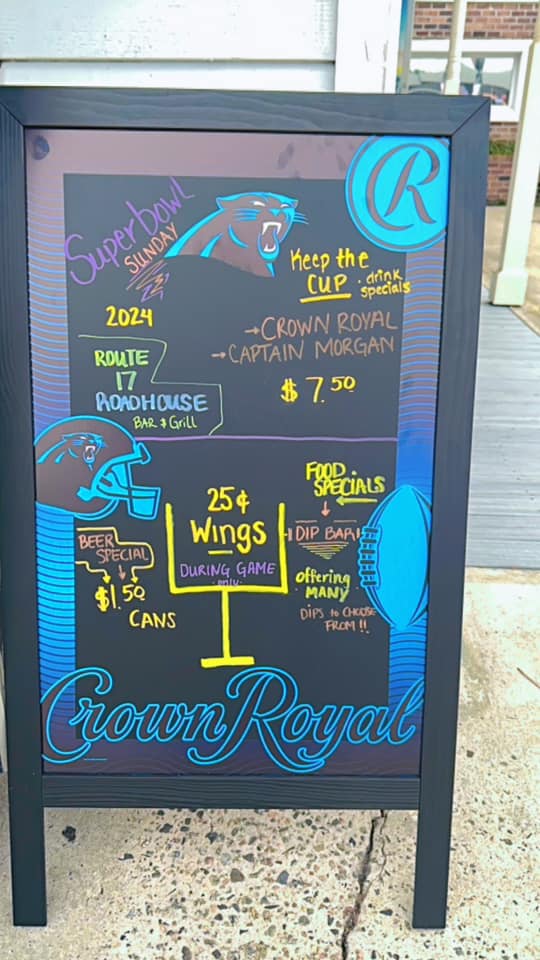 R
Superbowl
SUNDAY
2024
Keep the
CUP · drink
specials
→CROWN ROYAL
→CAPTAIN MORGAN
$ 7.50
ROUTE
17
ROADHOUSE
BAR & Grill
BEER
SPECIAL
$1.50
CANS
25¢
Wings
DURING GAME
only
FOOD
SPECIALS
DIP BAR!
offering
MANY
DIPS to CHOOSE
FROM!!
Crown Royal